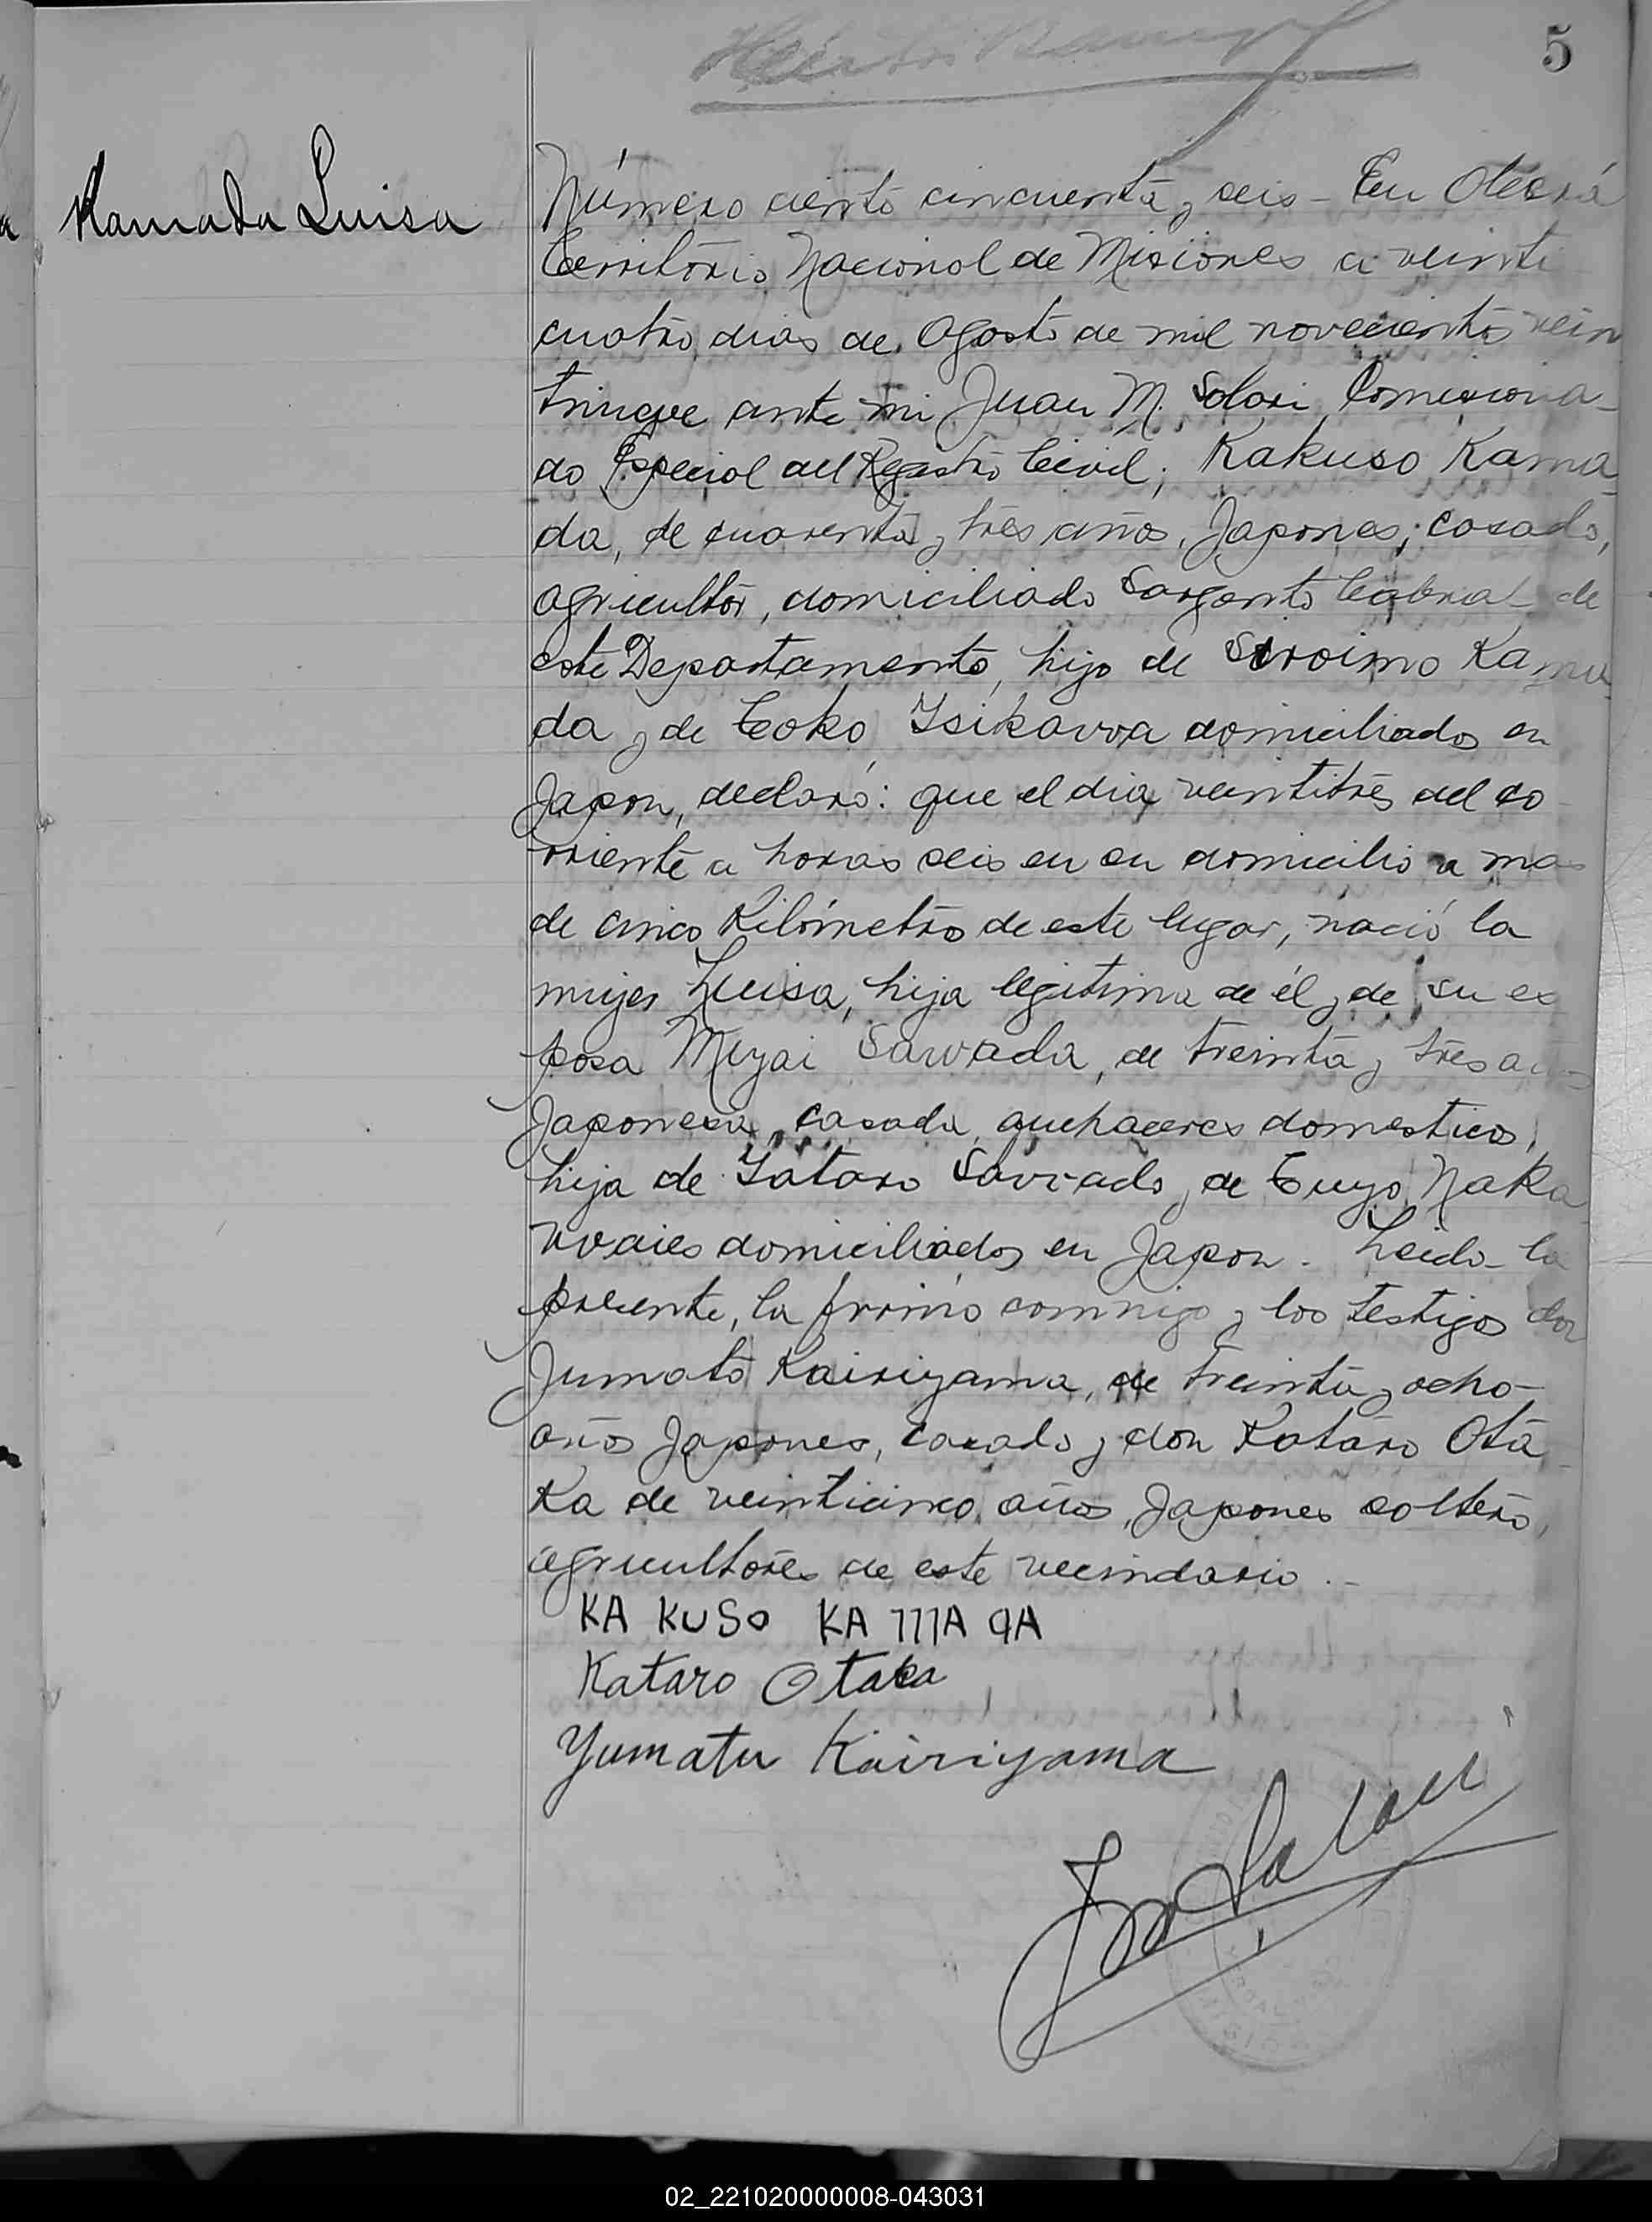 5
Kamada Luisa
Número ciento cincuenta y seis - En Oberá
Territorio Nacional de Misiones a veinti
cuatro dias de Agosto de mil novecientos
ante mi Juan M. Solari Comisiona-
do Especial del Registro Civil; Kakuso Kama
da, de cuarenta y tres años, Japones; casado,
agricultor, domiciliado Sargento Cabral de
este Departamento, hijo de Siroimo Kama
da y de Coko Isikawa domiciliados en
Japon, declaró: que el dia veintitres del co
rriente a horas seis en su domicilio a mas
de cinco Kilómetros de este lugar, nació la
mujer Luisa, hija legitima de él y de su es
posa Miyai Sawada, de treinta y tres años
Japonesa, casada, quehaceres domesticos,
hija de Yataro Sawada y de Cuyo Naka
domiciliados en Japon. Leida la
presente, la firmó conmigo y los testigos don
Jumato Kairiyama, de treinta y ocho-
años Japones, casado y don Kataro Ota
Ka de veinticinco años, Japones soltero,
agricultores de este vecindario.-
KA KUSO KA MA dA
Kataro Otaka
Yumatu Kairiyama
02_221020000008-043031